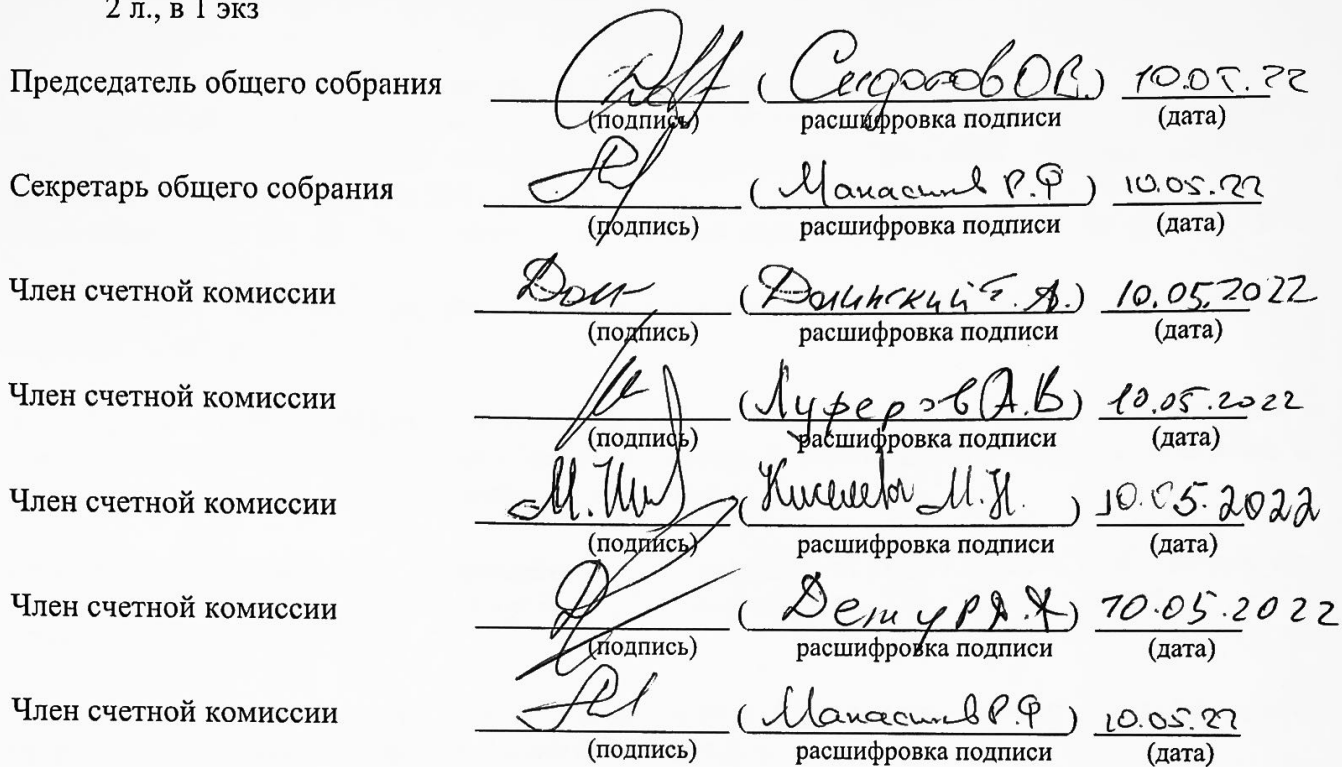 2 л., в 1 экз
Председатель общего собрания ( О.В.) 10.05.22
(подпись) расшифровка подписи (дата)
Секретарь общего собрания ( Р.Ф ) 10.05.22
(подпись) расшифровка подписи (дата)
Член счетной комиссии (Долинский Г. А.) 10.05.2022
(подпись) расшифровка подписи (дата)
Член счетной комиссии (Луферов А.В) 10.05.2022
(подпись) расшифровка подписи (дата)
Член счетной комиссии М. Киселева М.Н. ) 10.05.2022
(подпись) расшифровка подписи (дата)
Член счетной комиссии ( ) 10.05.2022
(подпись) расшифровка подписи (дата)
Член счетной комиссии ( Р.Ф ) 10.05.22
(подпись) расшифровка подписи (дата)